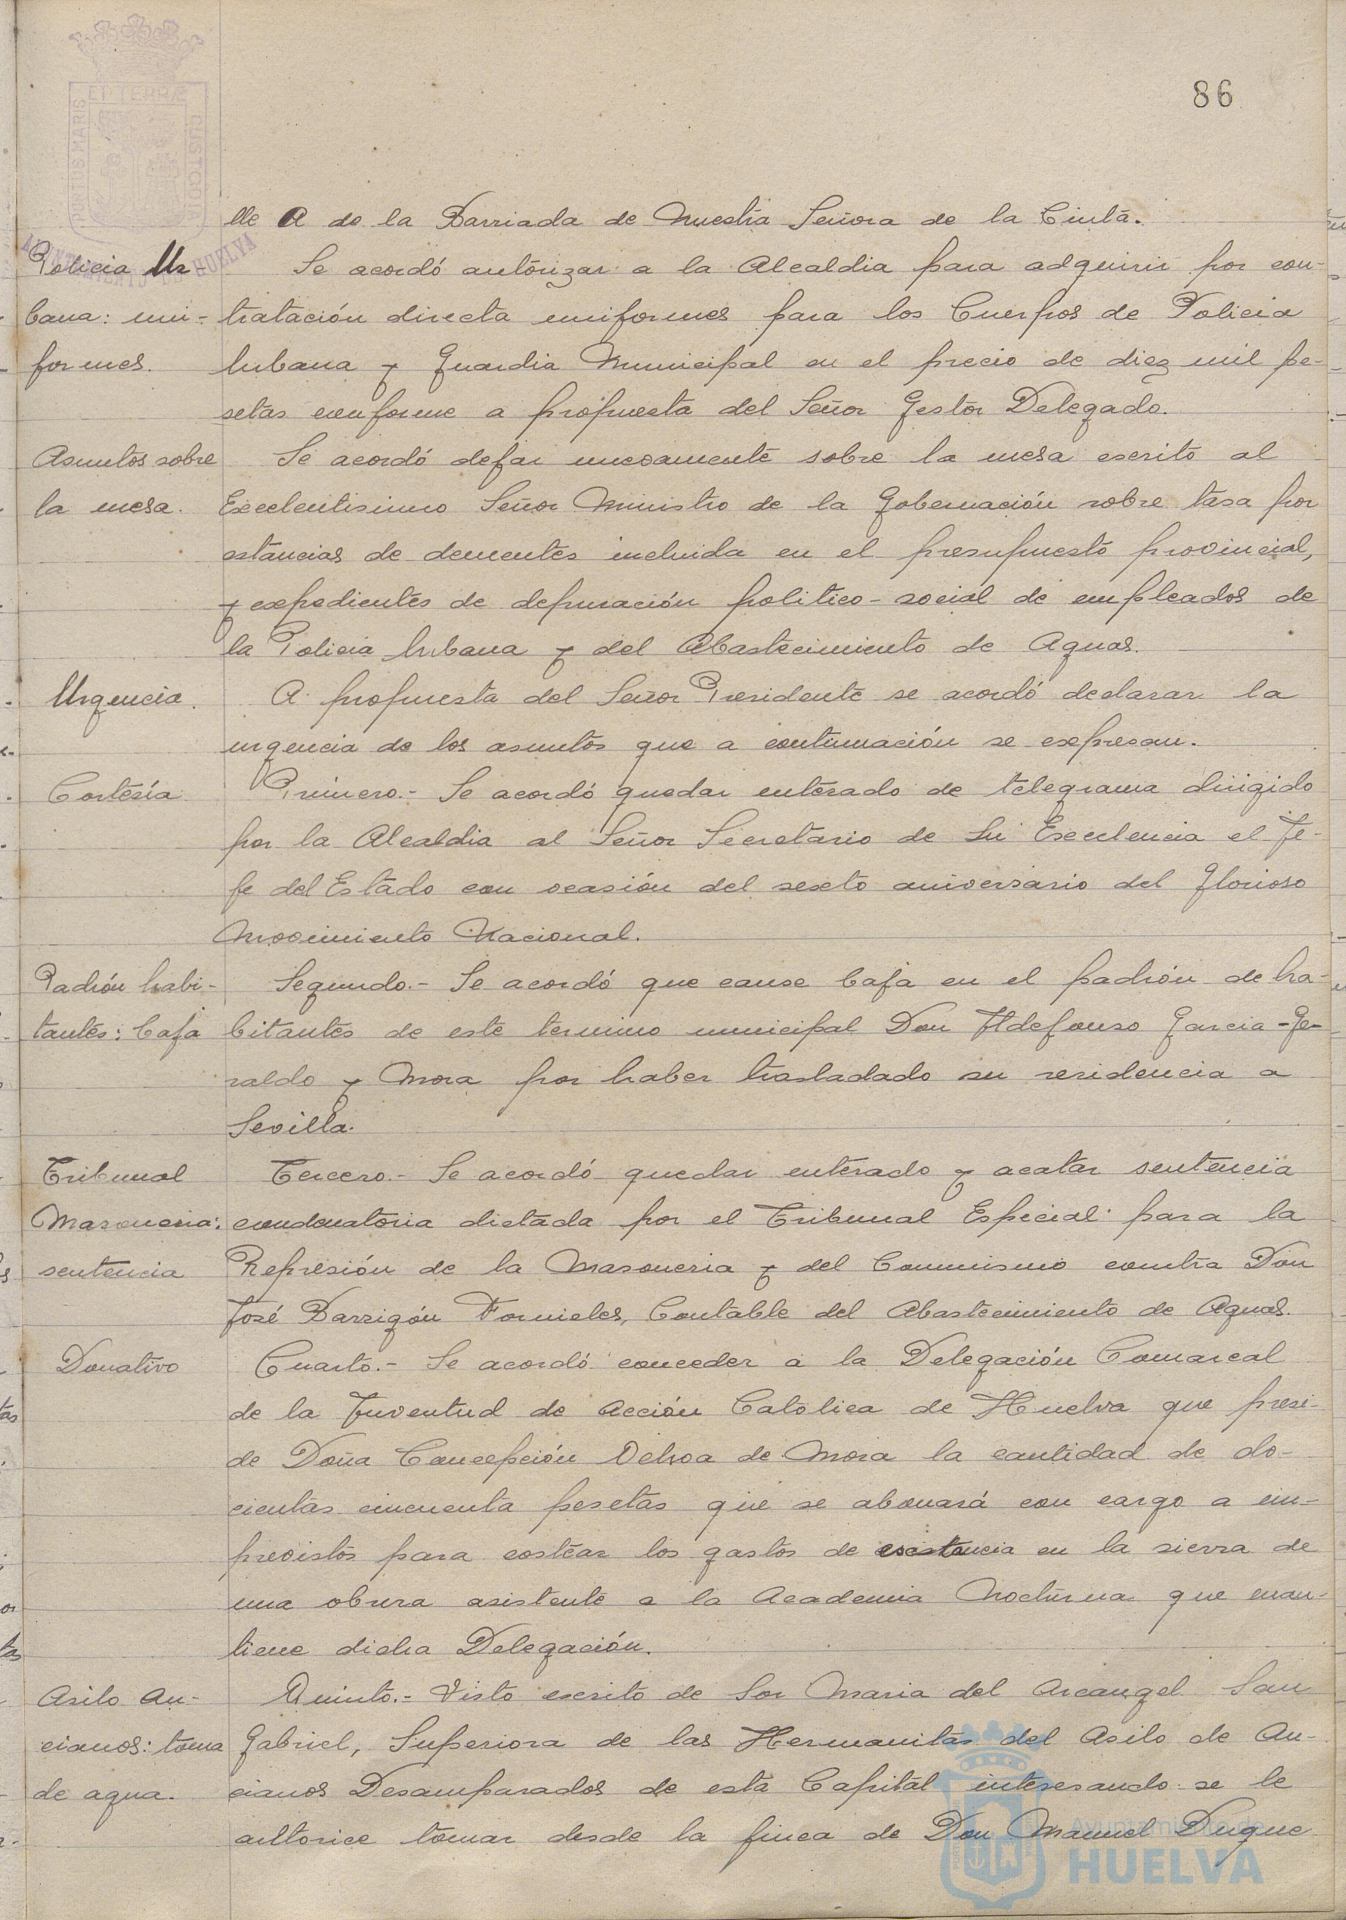 86
PORTUS MARIS ET TERRÆ CUSTODIA
AYUNTAMIENTO DE HUELVA
lle A de la Barriada de Nuestra Señora de la Cinta.
Policia Ur-
bana: uni-
formes.
Se acordó autorizar a la Alcaldia para adquirir por con-
tratación directa uniformes para los Cuerpos de Policia
Urbana y Guardia Municipal en el precio de diez mil pe-
setas conforme a propuesta del Señor Gestor Delegado.
Asuntos sobre
la mesa.
Se acordó dejar nuevamente sobre la mesa escrito al
Excelentisimo Señor Ministro de la Gobernación sobre tasa por
estancias de dementes incluida en el presupuesto provincial,
y expedientes de depuración politico-social de empleados de
la Policia Urbana y del Abastecimiento de Aguas.
Urgencia.
A propuesta del Señor Presidente se acordó declarar la
urgencia de los asuntos que a continuación se expresan.
Cortesía
Primero.- Se acordó quedar enterado de telegrama dirigido
por la Alcaldia al Señor Secretario de Su Excelencia el Je-
fe del Estado con ocasión del sexto aniversario del Glorioso
Movimiento Nacional.
Padrón habi-
tantes: baja
Segundo.- Se acordó que cause baja en el padrón de ha-
bitantes de este termino municipal Don Ildefonso Garcia-Ge-
raldo y Mora por haber trasladado su residencia a
Sevilla.
Tribunal
Masoneria:
sentencia
Tercero.- Se acordó quedar enterado y acatar sentencia
condonatoria dictada por el Tribunal Especial para la
Represión de la Masoneria y del Comunismo contra Don
José Barrigón Fornieles, Contable del Abastecimiento de Aguas.
Donativo
Cuarto.- Se acordó conceder a la Delegación Comarcal
de la Juventud de Acción Católica de Huelva que presi-
de Doña Concepción de Mora la cantidad de do-
cientas cincuenta pesetas que se abonará con cargo a im-
previstos para costear los gastos de estancia en la sierra de
una obrera asistente a la Academia Nocturna que man-
tiene dicha Delegación.
Asilo An-
cianos: toma
de agua.
Quinto.- Visto escrito de Sor Maria del Arcangel San
Gabriel, Superiora de las Hermanitas del Asilo de An-
cianos Desamparados de esta Capital interesando se le
autorice tomar desde la finca de Don Manuel Duque
Ayuntamiento de
HUELVA